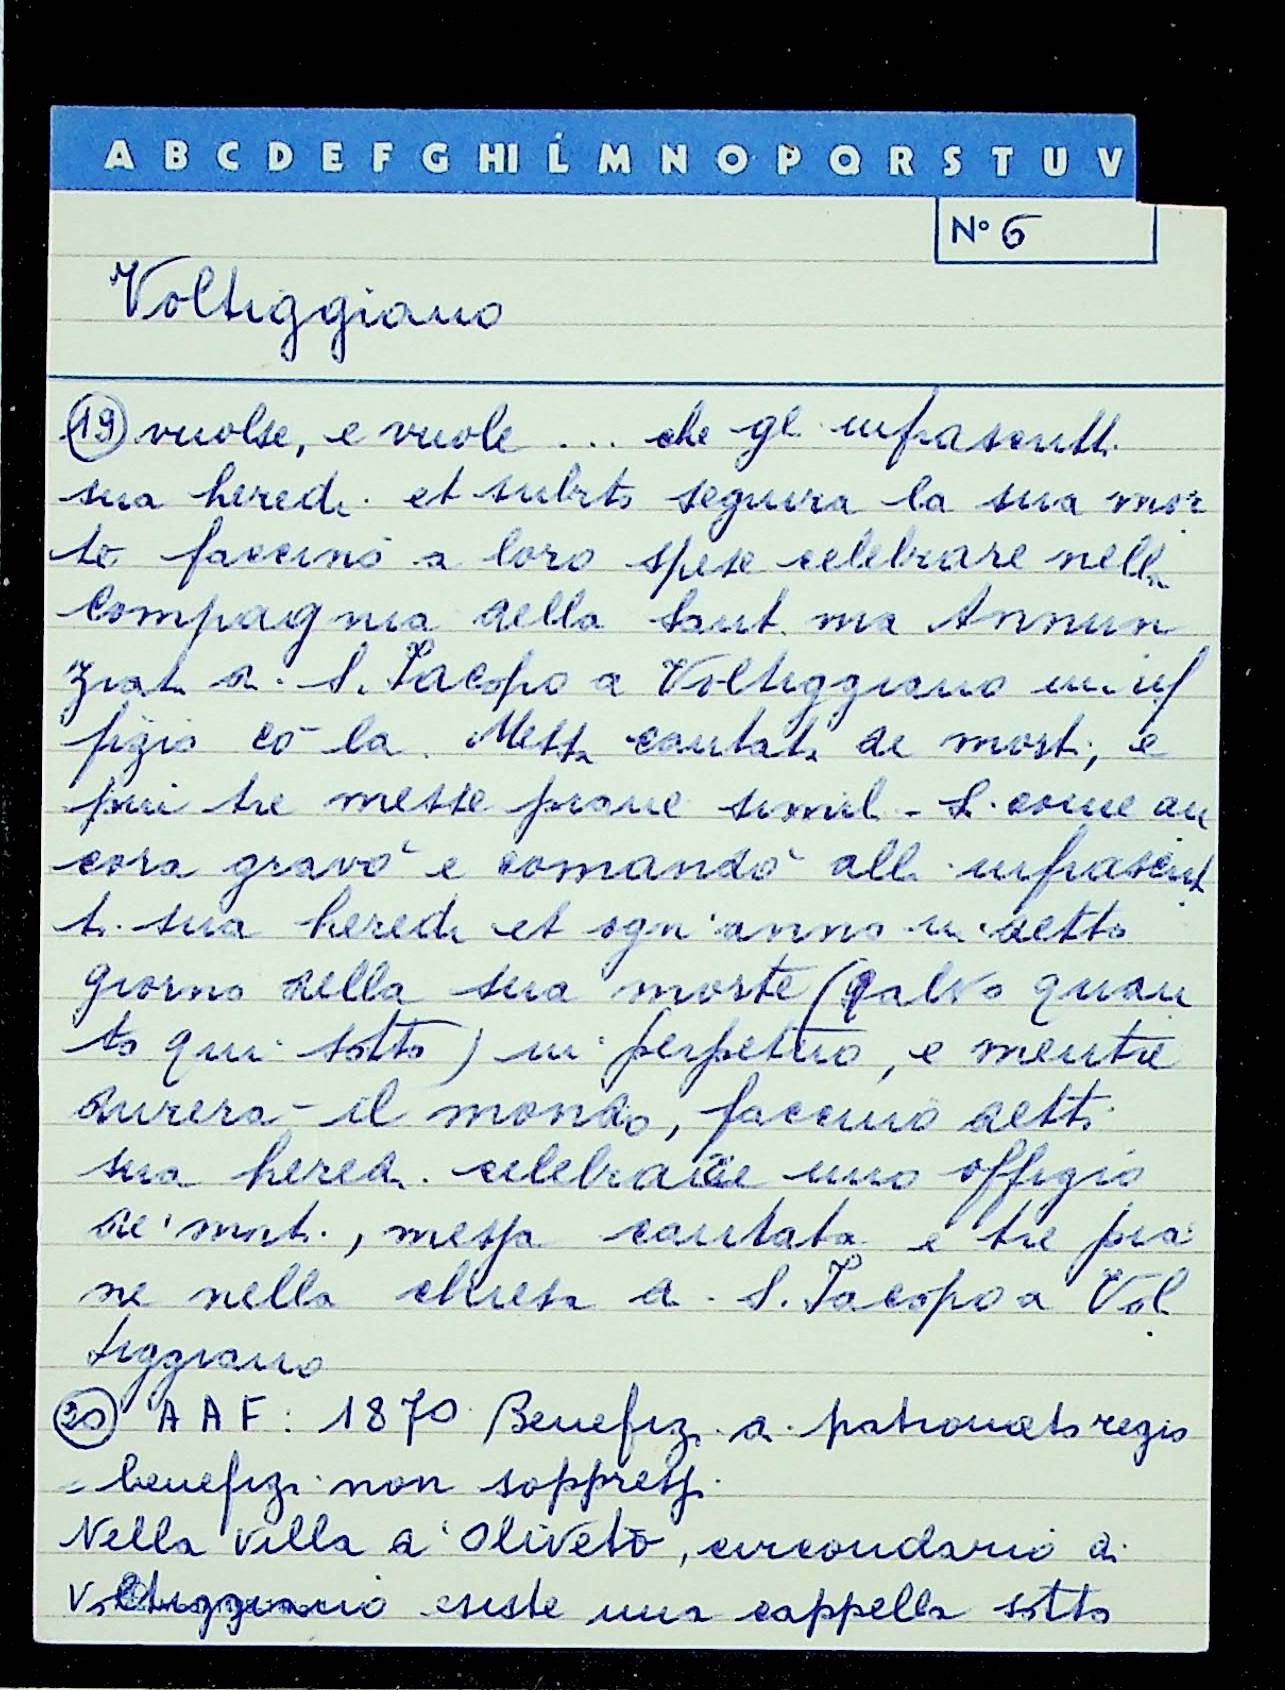 A B C D E F G HI L M N O P Q R S T U V
N° 6
Voltiggiano
(19) vuolse, e vuole ... che gl'infrascritti
sua heredi et subito seguira la sua mor
te faccino a loro spese celebrare nella
Compagnia della Sant.ma Annun
ziata di S. Jacopo a Voltiggiano un'uf
fizio cō la Messa cantata de morti, e
piu tre messe piane simili - Si come an
cora gravò e comandò alli infrascrit
ti sua heredi et ogn'anno in detto
giorno della sua morte (salvo quan
to qui sotto) in perpetuo, e mentre
durerà il mondo, faccino detti
sua heredi celebrare uno offizio
de' morti, messa cantata e tre pia
ne nella chiesa di S. Jacopo a Vol
tiggiano
(20) AAF: 1870 Benefizi di patronato regio
- benefizi non soppressi
Nella villa d'Oliveto, circondario di
Voltiggiano esiste una cappella sotto